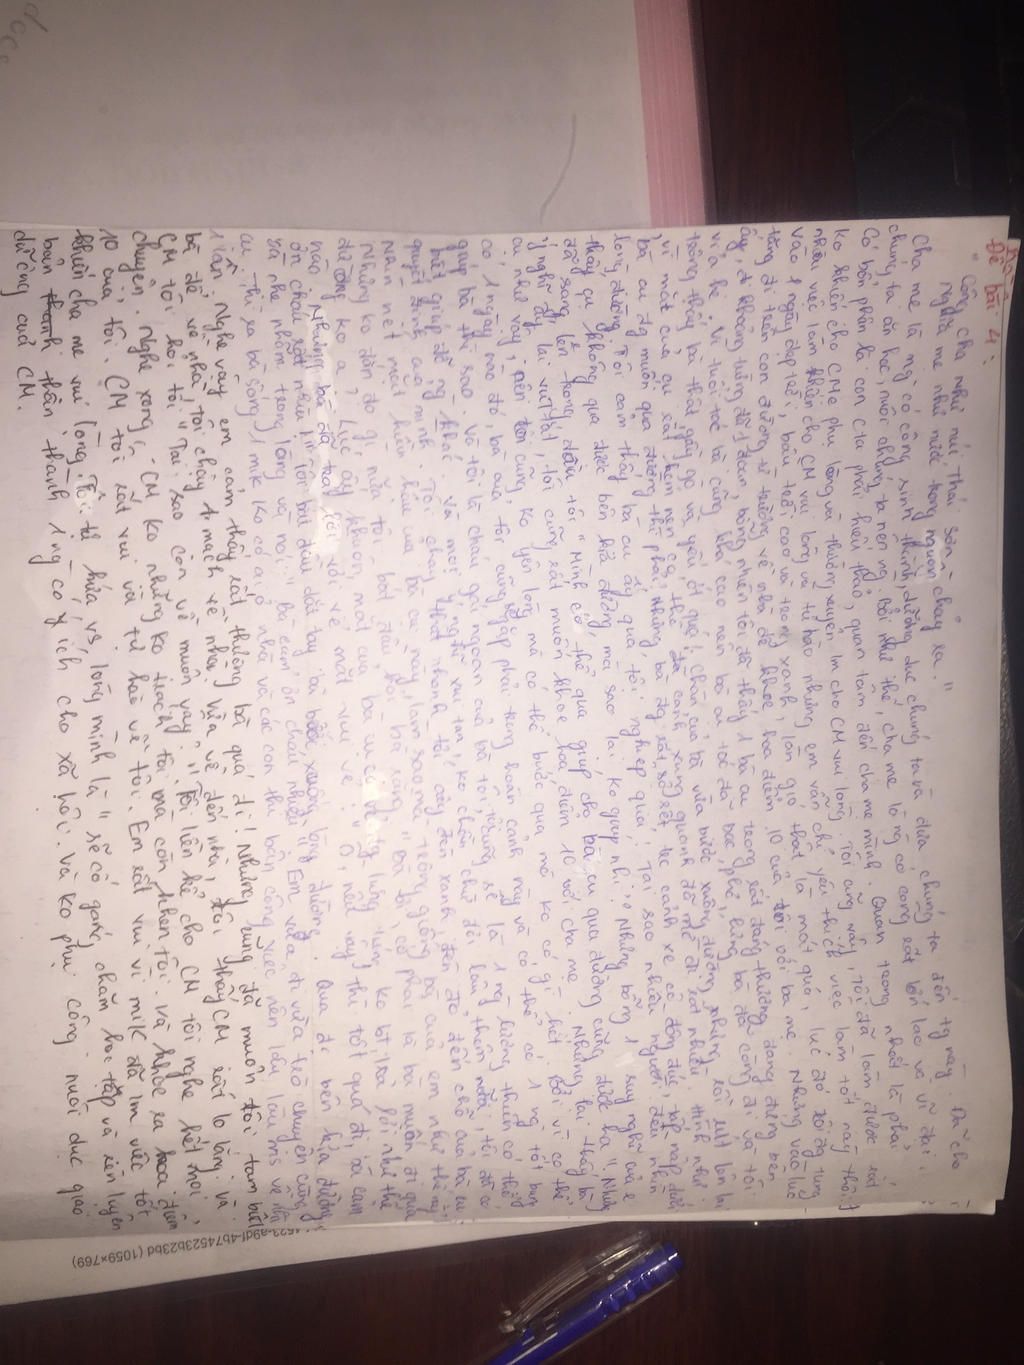 Đề bài 4:
"Công cha như núi Thái Sơn
Nghĩa mẹ như nước trong nguồn chảy ra."
Cha mẹ là ng có công sinh thành dưỡng dục chúng ta và đưa chúng ta đến ngày nay. Đã cho
chúng ta ăn học, nuôi chúng ta nên ng. Bởi như thế, cha mẹ là ng có công rất lớn lao và vĩ đại.
Có bổn phận là con cta phải hiếu thảo, quan tâm đến cha mẹ mình. Quan trọng nhất là phải
ko khiến cho CM phụ lòng và thường xuyên lm cho CM vui lòng. Tôi cũng vậy, tôi đã làm được rất
nhiều việc làm khiến cho CM vui lòng và tự hào nhưng em vẫn chỉ yêu thích việc làm tốt này thôi.
Vào 1 ngày đẹp trời, bầu trời cao và trong xanh, làn gió thật là mát quá, lúc đó tôi đg tung
tăng đi trên con đường từ trường về nhà để khoe hoa điểm 10 của tôi với ba mẹ. Nhưng vào lúc
ấy, đi khoảng từng đó 1 đoạn, bỗng nhiên tôi đã thấy 1 bà cụ trông rất đáng thương đang đứng bên
vỉa hè. Vì tuổi tác bà cũng khá cao nên bà cụ tóc đã bạc phơ, lưng bà đã còng đi và tôi
trông thấy bà thật gầy gò và yếu ớt quá! chân của bà vừa bước xuống đường nhưng rồi rụt lên bởi
vì mắt của cụ rất kém nên cụ thể đã cạnh xung quanh đã mờ đi rất nhiều. Hình như
bà cụ đg muốn qua đường thì phải, nhưng bà đg rất sợ sệt tấc cảnh xe cộ đông đúc, tấp nập dưới
lòng đường. Tôi cảm thấy bà cụ ấy quá tội nghiệp quá, tại sao nhiều người đều nhìn
thấy cụ không qua được bên kia đường mà sao lại ko giúp nhỉ." Nhưng bỗng 1 suy nghĩ của e
đã sáng lên trong đầu tôi "Mình có thể qua giúp cho bà cụ qua đường cũng được ha" Nhưng
ý nghĩ ấy lại vụt tắt, tôi cũng rất muốn khoe hoa điểm 10 với cha mẹ. Nhưng lại thấy bà
cụ như vậy, nên tôi cũng ko yên lòng mà có thể bước qua mà ko có gì hết. Bởi vì có thể
có 1 ngày nào đó, bà của tôi cũng gặp phải trong hoàn cảnh này và có thể có 1 ng tốt bụng
giúp bà thì sao. Và tôi là cháu gái ngoan của bà tôi, tôi cũng sẽ là 1 ng lương thiện có thể
biết giúp đỡ ng khác và mọi người xung tan, ko chần chừ đợi lâu thêm nữa, tôi đã có
quyết định của mình. Tôi chạy thật nhanh tới cây đèn xanh đèn đỏ đến chỗ của bà cụ.
Nhìn nét mặt hiền hậu của bà cụ này, làm sao mà trông giống bà của em như thế này.
Nhưng ko đắn đo gì nữa tôi bắt đầu hỏi bà rằng "Bà ơi, có phải là bà muốn đi qua
đường ko ạ?" Lúc ấy khuôn mặt của bà cụ có vẻ đg lúng túng ko bt trả lời như thế
nào. Nhưng bà đã trả lời với vẻ mặt vui vẻ: "Ồ, nếu vậy thì tốt quá đi bà cảm
ơn cháu rất nhiều". Em vừa đi vừa trò chuyện cùng
bà nhẹ nhàng trong lòng và nói: "bà cảm ơn cháu nhiều".
cụ. Thì ra bà sống 1 mik ko có ai ở nhà và các con thì bận công việc nên lâu lâu ms về
1 lần. Nghe vậy em cảm thấy rất thương bà quá đi! Nhưng cũng đã muộn tôi tạm biệt
bà để về nhà. Tôi chạy 1 mạch về nhà. Vừa về đến nhà, tôi thấy CM rất lo lắng và
CM tôi hỏi tôi "Tại sao con về muộn vậy". Tôi liền kể cho CM tôi nghe hết mọi
chuyện. Nghe xong, CM ko những ko trách tôi mà còn khen tôi. Và khoe ra hoa điểm
10 của tôi. CM tôi rất vui và tự hào về tôi. Em rất vui vì mik đã lm việc tốt
khiến cha mẹ vui lòng. Tôi tự hứa vs lòng mình là "sẽ cố gắng chăm học tập và rèn luyện
bản thân thành 1 ng có ích cho xã hội. Và ko phụ công nuôi dục giáo
dưỡng của CM.
(1059×769)